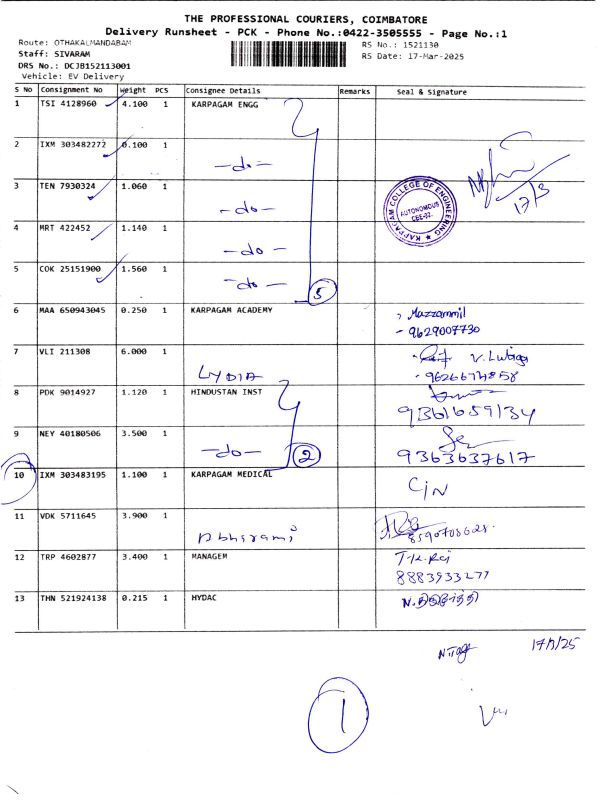 THE PROFESSIONAL COURIERS, COIMBATORE
Delivery Runsheet - PCK - Phone No.:0422-3505555 - Page No.:1
Route: OTHAKALMANDABAM
RS No.: 1521130
Staff: SIVARAM
RS Date: 17-Mar-2025
DRS No.: DCJB152113001
Vehicle: EV Delivery
S No Consignment No Weight PCS Consignee Details Remarks Seal & Signature
1 TSI 4128960 4.100 1 KARPAGAM ENGG
2 IXM 303482272 0.100 1 -do-
3 TEN 7930324 1.060 1 -do-
KARPAGAM COLLEGE OF ENGINEERING
AUTONOMOUS
CBE-32.
17/3
4 MRT 422452 1.140 1 -do-
5 COK 25151900 1.560 1 -do-
5
6 MAA 650943045 0.250 1 KARPAGAM ACADEMY Mazzammil
- 9629007730
7 VLI 211308 6.000 1 LYDIA
8 PDK 9014927 1.120 1 HINDUSTAN INST
9361659134
9 NEY 40180506 3.500 1 -do- 2
9363637617
10 IXM 303483195 1.100 1 KARPAGAM MEDICAL
11 VDK 5711645 3.900 1 Abhirami
12 TRP 4602877 3.400 1 MANAGEM
8883933277
13 THN 521924138 0.215 1 HYDAC
1